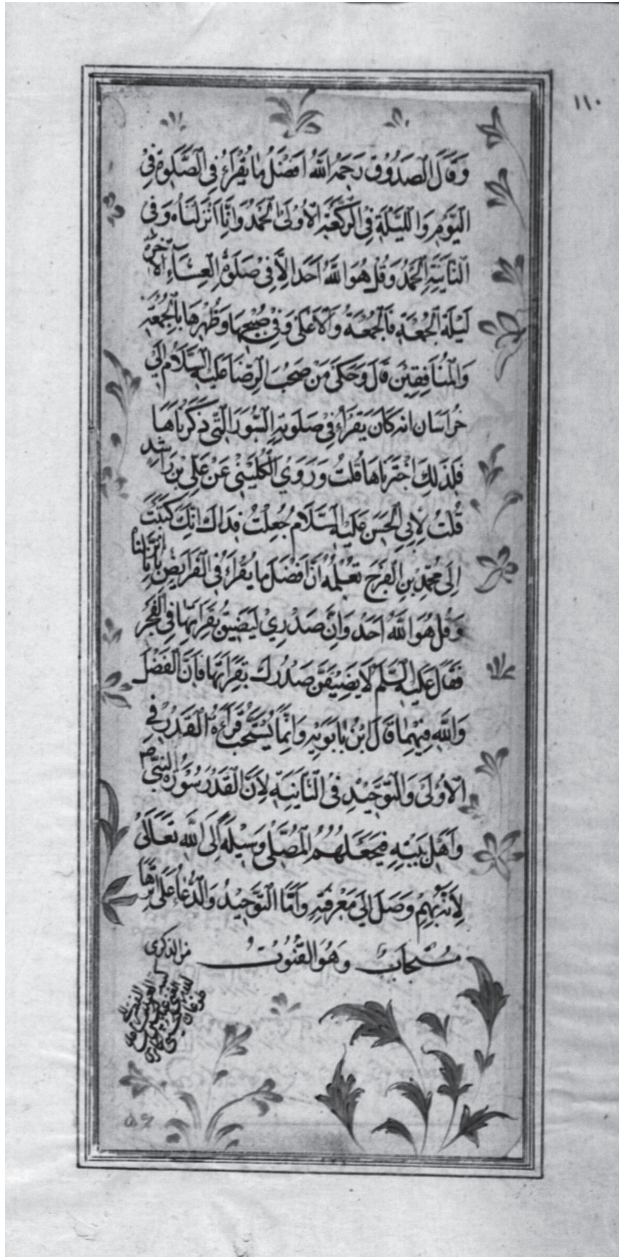 ١١٠
وَقَالَ الصَدُوُق رَحِمَهُ اللَّهُ اَفضَلُ مَا يُقرَاءُ فِى الصَّلَوة فِى
اليَوْمِ وَ الليَّلَة فِى الرَكعَة الاُولىٰ الحَمْدُ وَانَّا اَنْزَلنَاهُ وَفِى
الثانِيَةِ الحَمْدُ وَقُل هُوَ اللَّهُ اَحَد الَّا فِى صَلَوة العِشَاءِ الآخرة
لَيْلَة الجُمْعَة فَالجُمعَة وَالاَعْلىٰ وَفِى صُبْحِهَا وَظُهْرِهَا بِالجُمعَة
وَالمُنَافِقِيْنَ قَالَ وَحَكىٰ مَن صَحِبَ الرِضَا عَليهِ السَّلَامُ اِلىٰ
خُرَاسَان انهُ كَانَ يَقرَاءُ فِى صَلَوتِهِ السُّوَرَ الَّتِى ذَكَرنَاهَا
فَلذٰلِكَ اخْتَرنَاهَا قُلتُ وَرَوىٰ الكُلَينىُ عَنْ عَلى بْن رَاشِد
قُلتُ لِاَبِى الحَسَنِ عَلَيْهِ السَّلَامُ جُعِلْتُ فِدَاكَ انِكَ كَتَبْتَ
اِلىٰ مُحمّدِ بن الفَرَج تعْلِمُه اَنَّ اَفضَلَ مَا يُقرَاءُ فى الفَرَايضِ بانَّا انزلنا
وَقُل هُوَ اللَّهُ اَحَد وَانَّ صَدْرِى لَيَضيقُ بقِرَاءَتِهَا فى الفَجْر
فَقَال عَليهِ السَّلم لَا يَضِيْقَنَّ صَدْرُكَ بقِرَاءَتهَا فَاِنَّ الفَضْلَ
وَاللَّهِ فِيْهِمَا قَالَ ابْنُ بَابَوَيْهِ وَانَّمَا يُسْتَحَبُّ قِرَاءَة القَدْرِ فِى
الاُولىٰ وَالتوَحِيْدِ فِى الثَّانيَة لِاَنَّ القَدْرَ سُوْرَة النبىِّ ص
وَاَهْل بَيْتِهِ فَيَجعَلهُمُ المُصَلّى وَسِيْلَةً اِلىٰ اللَّهِ تعَالىٰ
لِاَنَّه بِهِمْ وَصَلَ اِلىٰ مَعْرفتِهِ وَامَّا التوَحِيْدُ وَالدُّعَاءُ عَلىٰ اَثَرِهَا
مُسْتجَابٌ وَهُوَ القُنُوتُ من الذكرى